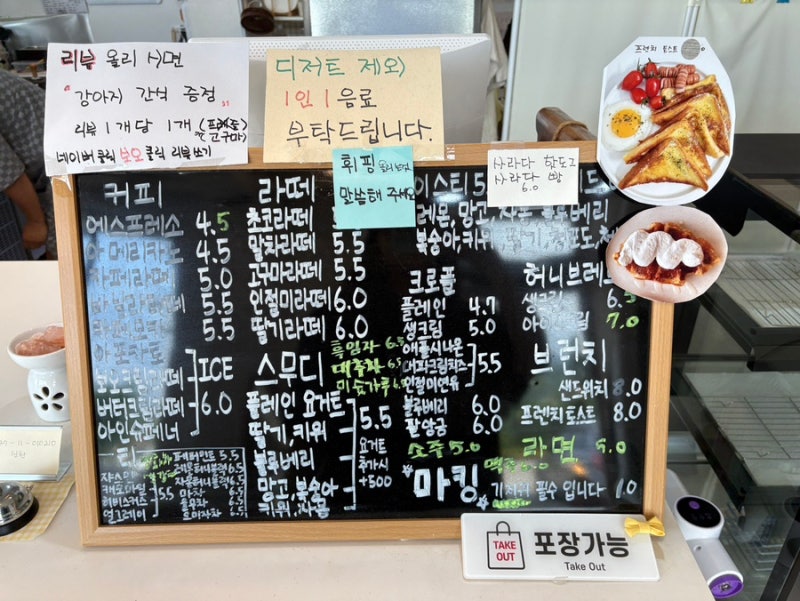 리뷰 올리시면
"강아지 간식 증정"
리뷰 1개당 1개
네이버 클릭 보오 클릭 리뷰 쓰기
디저트 제외
1인 1 음료
부탁드립니다.
휘핑
말씀해 주세요
사라다 핫도그
사라다 빵
6.0
프렌치 토스트
커피
에스프레소 4.5
아메리카노 4.5
카페라떼 5.0
바닐라라떼 5.5
5.5
아포카토
보오크림라떼
버터크림라떼
아인슈페너
ICE
6.0
티
페퍼민트 5.5
캐모마일
5.5
얼그레이
마차 6.5
유자차 6.5
라떼
초코라떼
말차라떼 5.5
고구마라떼 5.5
인절미라떼 6.0
딸기라떼 6.0
흑임자 6.5
대추차 6.5
미숫가루 6.0
스무디
플레인 요거트
딸기, 키위
블루베리
망고, 복숭아
5.5
요거트
추가시
+500
아이스티 5.
레몬, 망고, 자몽, 블루베리
복숭아, 키위, 딸기, 청포도
크로플
플레인 4.7
생크림 5.0
애플시나몬
인절미연유
5.5
블루베리 6.0
팥앙금 6.0
소주 5.0
맥주 5.0
허니브레드
생크림 6.5
아이스크림 7.0
브런치
샌드위치 8.0
프렌치토스트 8.0
라면 5.0
마킹
기저귀 필수 입니다 1.0
TAKE OUT
포장가능
Take Out